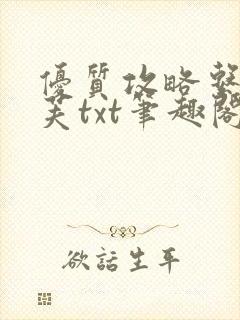 優質攻略
txt筆趣閣
欲話生平